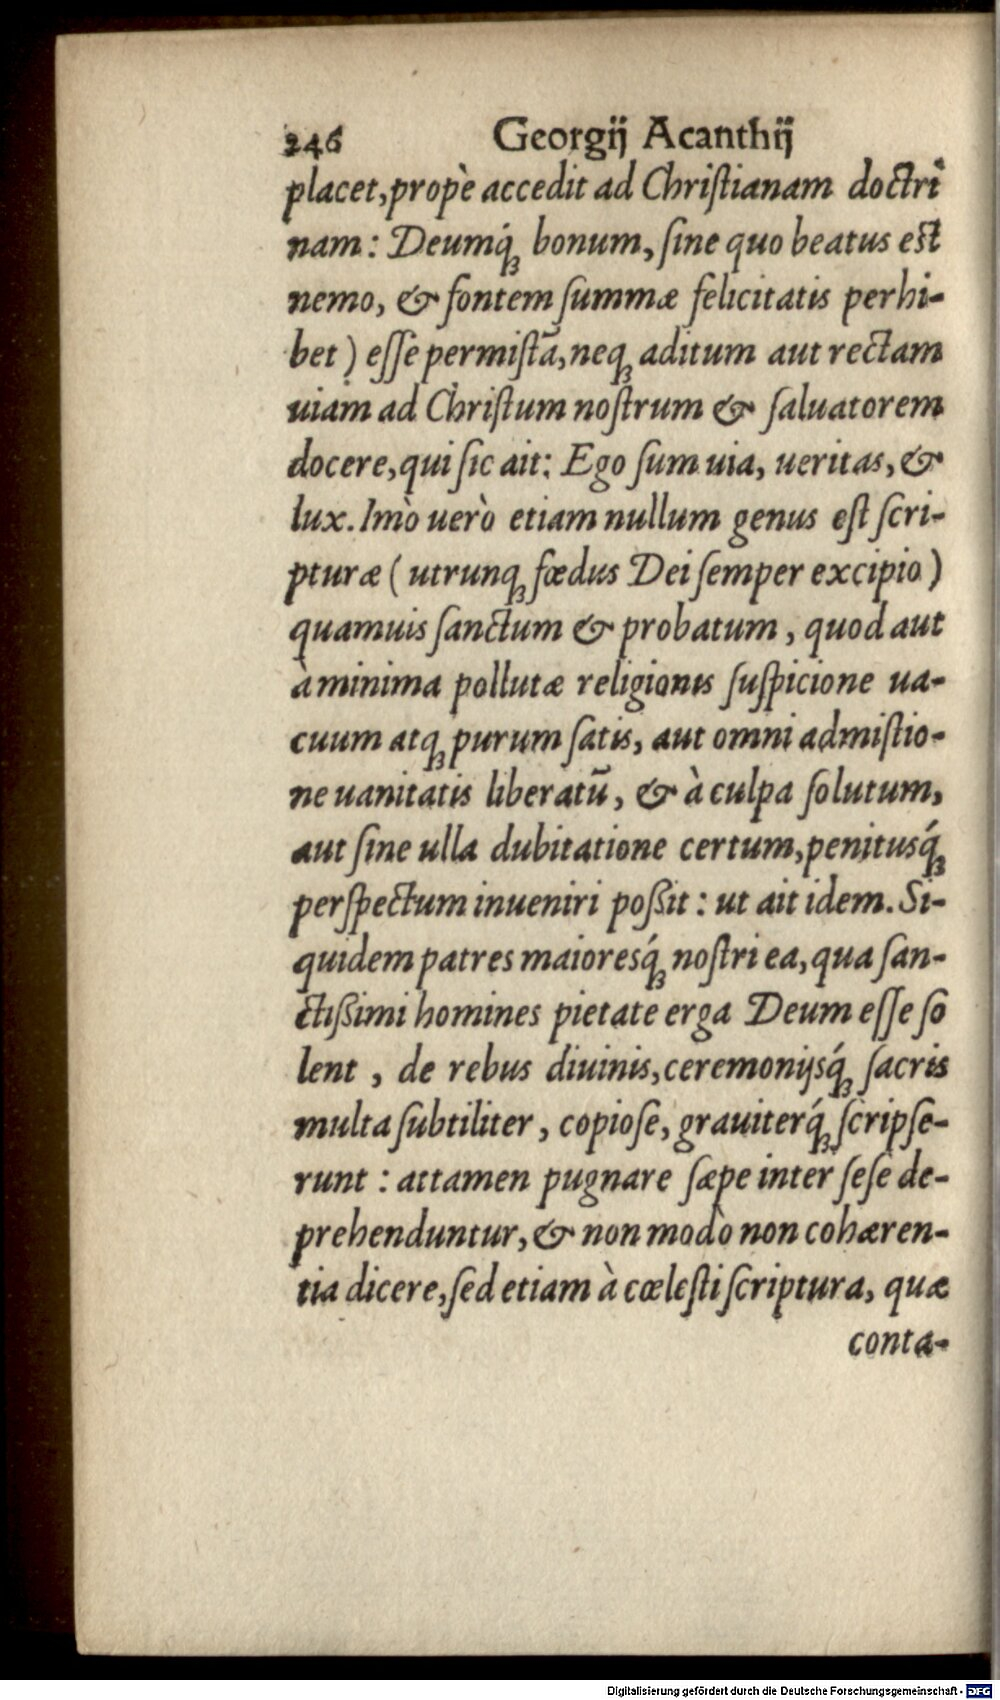 246 Georgij Acanthij
placet, propè accedit ad Christianam doctri
nam: Deumq́; bonum, sine quo beatus est
nemo, & fontem summæ felicitatis perhi-
bet) esse permistā, neq; aditum aut rectam
uiam ad Christum nostrum & saluatorem
docere, qui sic ait: Ego sum uia, ueritas, &
lux. Imò uerò etiam nullum genus est scri-
pturæ (utrunq; fœdus Dei semper excipio)
quamuis sanctum & probatum, quod aut
à minima pollutæ religionis suspicione ua-
cuum atq; purum satis, aut omni admistio-
ne uanitatis liberatū, & à culpa solutum,
aut sine ulla dubitatione certum, penitusq́;
perspectum inueniri poßit: ut ait idem. Si-
quidem patres maioresq́; nostri ea, qua san-
ctißimi homines pietate erga Deum esse so
lent, de rebus diuinis, ceremonijsq́; sacris
multa subtiliter, copiose, grauiterq́; scripse-
runt: attamen pugnare sæpe inter sese de-
prehenduntur, & non modò non cohæren-
tia dicere, sed etiam à cœlesti scriptura, quæ
conta-
Digitalisierung gefördert durch die Deutsche Forschungsgemeinschaft - DFG